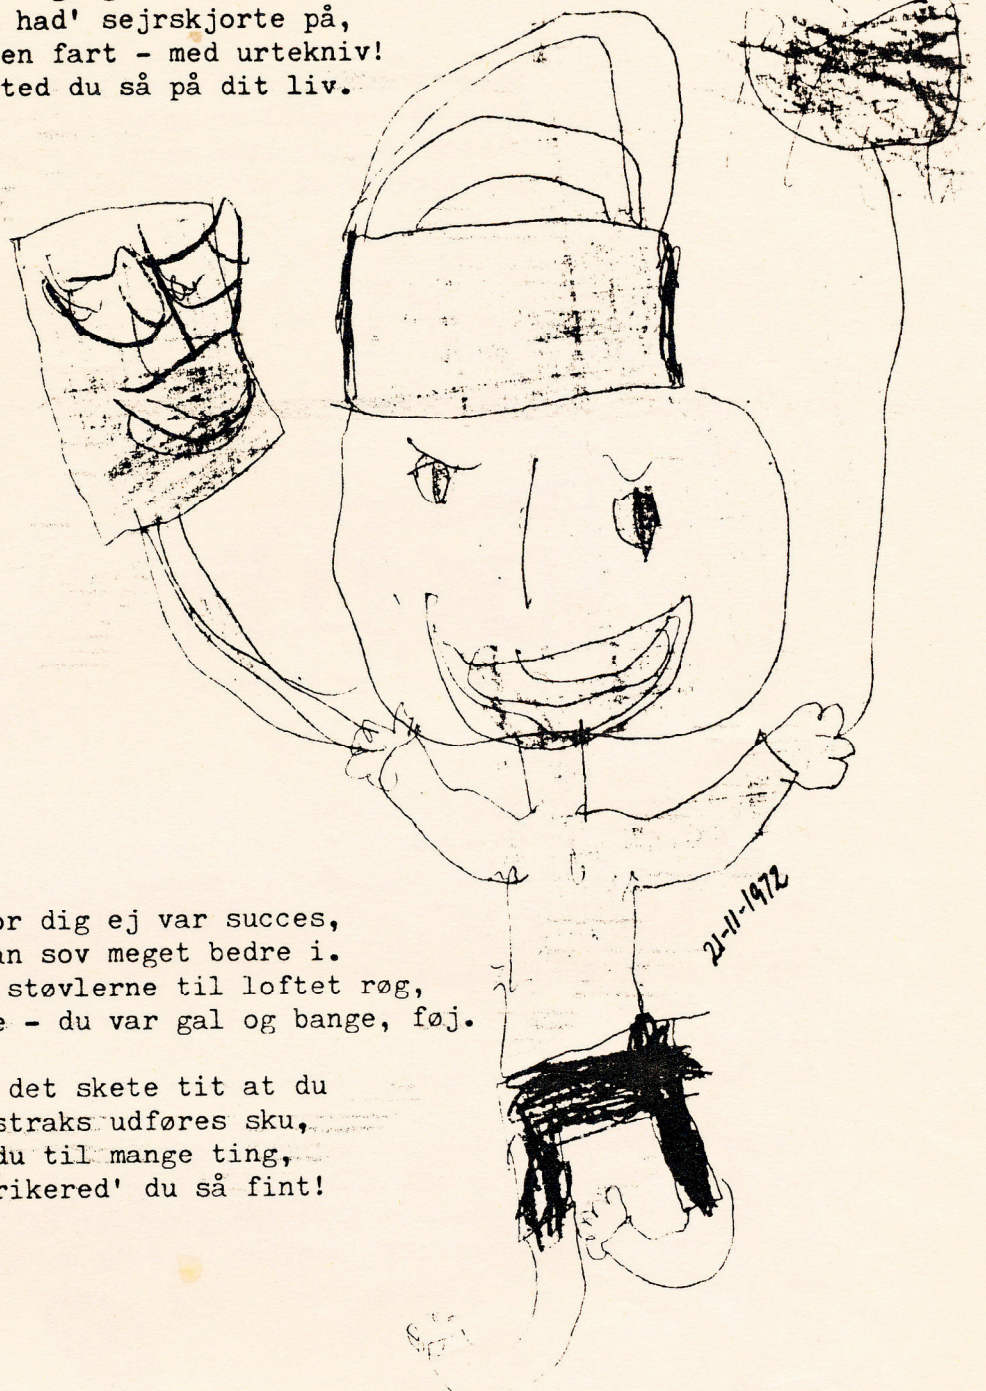 had' sejrskjorte på,
en fart - med urtekniv!
ted du så på dit liv.
or dig ej var succes,
an sov meget bedre i.
støvlerne til loftet røg,
e - du var gal og bange, føj.
det skete tit at du
straks udføres sku,
du til mange ting,
rikered' du så fint!
21-11-1972